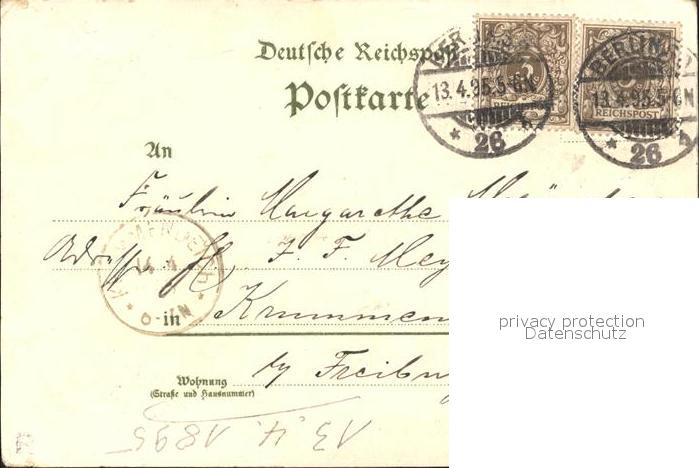 Deutsche Reichspost
Postkarte
BERLIN
13.4.95.5-6N
* 26
3
REICHSPOST
BERLIN
13.4.95.5-6N
REICHSPOST
* 26
An
Fräulein Margarethe
Adresse H. J. F. Mey
14 4
6-7N
in Krummen
by Freibu
privacy protection
Datenschutz
Wohnung
(Straße und Hausnummer)
13. 4. 1895